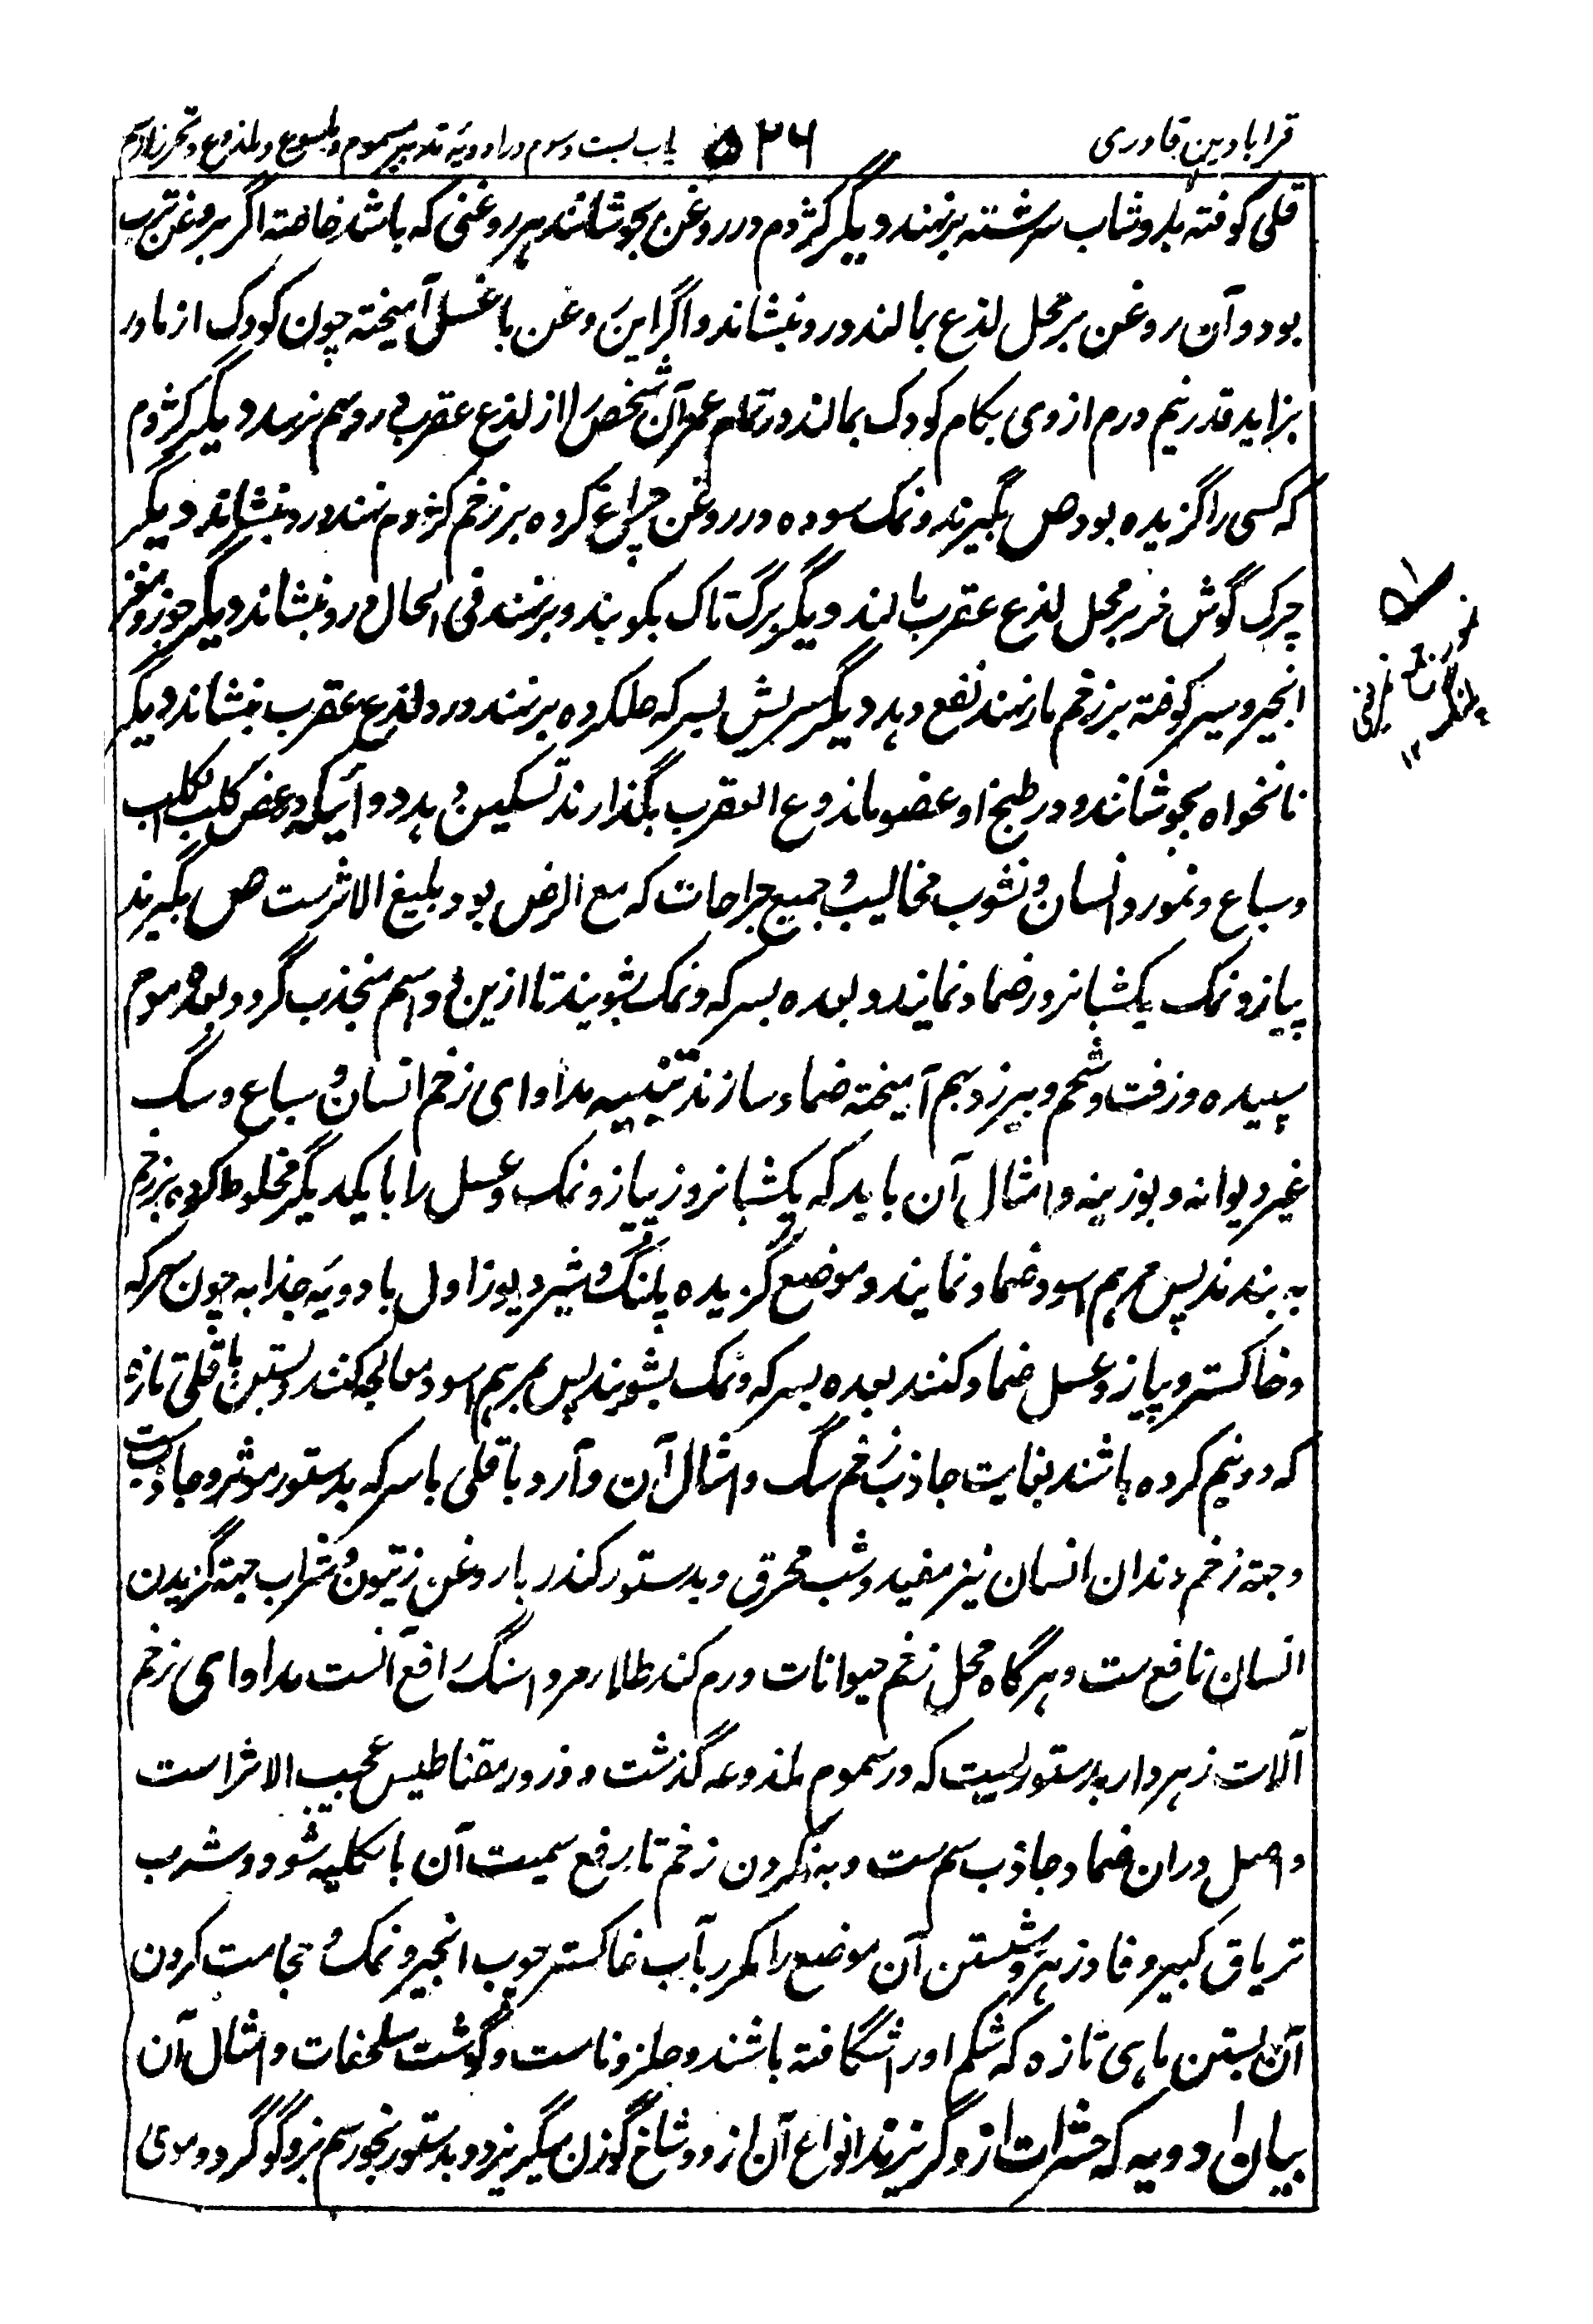 قرابادین قادری
۵۲۶
باب بست و سوم در ادویه تدابیر مسموم و ملسوع و ملذوع و تحرز از سم
قلی کوفته بدوشاب سرشته برنهند دیگر کژدم در روغن بجوشانند هر روغنی که باشد خاصته اگر بروغن ترب
بود و آن روغن بر محل لذع بمالند درد بنشاند و اگر این روغن با عسل آمیخته چون کودک از مادر
بزاید قدر نیم درم از وی بکام کودک بمالند در تمام عمر آن شخص را از لذع عقرب درد و سم نرسد دیگر کژدم
که کسی را گزیده بود ص بگیرند و نمک سوده در روغن چراغ کرده بر زخم کژدم نهند درد بنشاند دیگر
چرک گوش خر بر محل لذع عقرب مالند دیگر برگ تاک بکوبند و برنهند فی الحال درد بنشاند دیگر جوز و مغز
انجیر و سیر کوفته بر زخم مار نهند نفع دهد دیگر سریش بسرکه حل کرده برنهند درد لذع عقرب بنشاند دیگر
نانخواه بجوشانند و در طبخ او عضو ملذوع العقرب بگذارند تسکین دهد دوائیکه در عض کلب کلب
و سباع و نمور و انسان و نشوب مخالیب و جمیع جراحات که مع الرض بود بلیغ الاثرست ص بگیرند
پیاز و نمک یکشبانروز ضماد نمایند و بعده بسرکه و نمک بشویند تا ازین دوا سم منجذب گردد بعده موم
سپیده و زفت و شحم و بیرزد بهم آمیخته ضماد سازند تنبیه مداوای زخم انسان و سباع و سگ
غیر دیوانه و بوزینه و امثال آن باید که یکشبانروز پیاز و نمک و عسل را با یکدیگر مخلوط کرده بر زخم
به بندند پس مرهم اسود ضماد نمایند و موضع گزیده پلنگ و شیر و یوز اول با دویه جذابه چون سرکه
و خاکستر و پیاز و عسل ضماد کنند بعده بسرکه و نمک بشویند پس بمرهم اسود معالجه کنند و بستن باقلی تازه
که دو نیم کرده باشند بغایت جاذب زخم سگ و امثال آن و آرد باقلی با سرکه بدستور موثر و جاذبست
و جهته زخم دندان انسان نیز مفید و شب محرق و بدستور کندر با روغن زیتون و شراب جهته گزیدن
انسان نافع ست و هرگاه محل زخم حیوانات ورم کند طلا مرداسنگ رافع آنست مداوای زخم
آلات زهردار بدستوریست که در سموم ملذوعه گذشت و ذرور مقناطیس عجیب الاثر است
و اصل دران ضماد جاذب سم ست و به نکردن زخم تا رفع سمیت آن بالکلیه شود و شرب
تریاق کبیر و فادزهر و شستن آن موضع را مکرر بآب خاکستر چوب انجیر و نمک و حجامت کردن
آن بستن ماهی تازه که شکم او را شگافته باشند و حلزونات و گوشت سلحفات و امثال آن
بیان ادویه که حشرات ازو گریزند انواع آن از دود شاخ گوزن میگریزد و بدستور بخور سم بز و گوگرد و موی